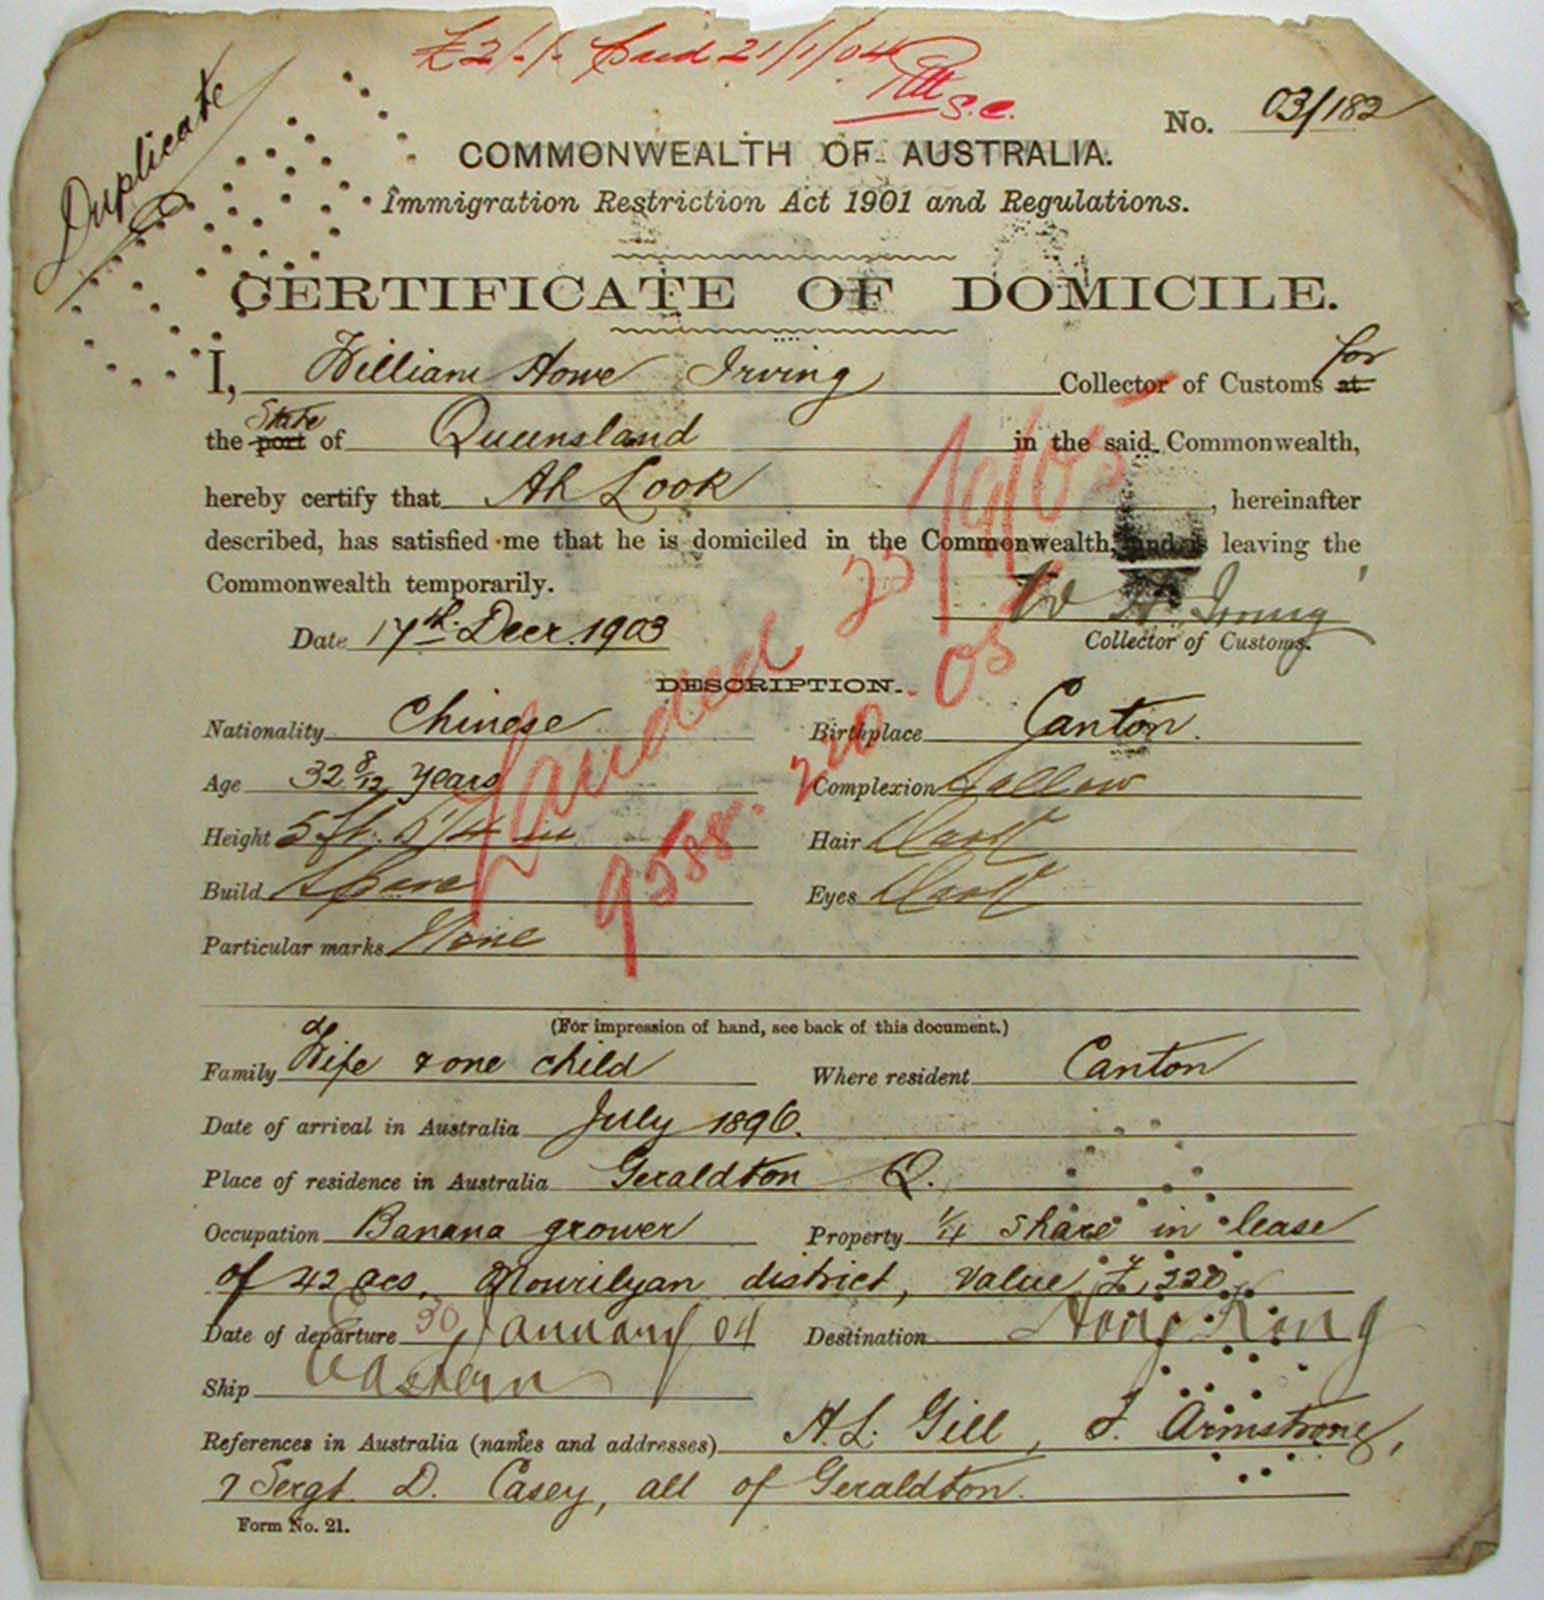 £2/-/- Paid 21/1/04
S.C.
Duplicate
No. 03/182
COMMONWEALTH OF AUSTRALIA.
Immigration Restriction Act 1901 and Regulations.
CERTIFICATE OF DOMICILE.
I, William Howe Irving Collector of Customs at for
the port State of Queensland in the said Commonwealth,
hereby certify that Ah Look, hereinafter
described, has satisfied me that he is domiciled in the Commonwealth, and is leaving the
Commonwealth temporarily.
Date 17th Decr. 1903 W H Irving
Collector of Customs.
Landed 23/9/05
9588. 2.10.05
DESCRIPTION.
Nationality Chinese Birthplace Canton.
Age 32 8/12 years Complexion Sallow
Height 5 ft. 5 1/4 in Hair Dark
Build Spare Eyes Dark
Particular marks None
(For impression of hand, see back of this document.)
Family Wife & one child Where resident Canton
Date of arrival in Australia July 1896.
Place of residence in Australia Geraldton Q.
Occupation Banana grower Property 1/4 share in lease
of 42 acs, Mourilyan district, value £220.
Date of departure 30 January 04 Destination Hong Kong
Ship Eastern
References in Australia (names and addresses) A.L. Gill, J. Armstrong,
& Sergt D. Casey, all of Geraldton.
Form No. 21.